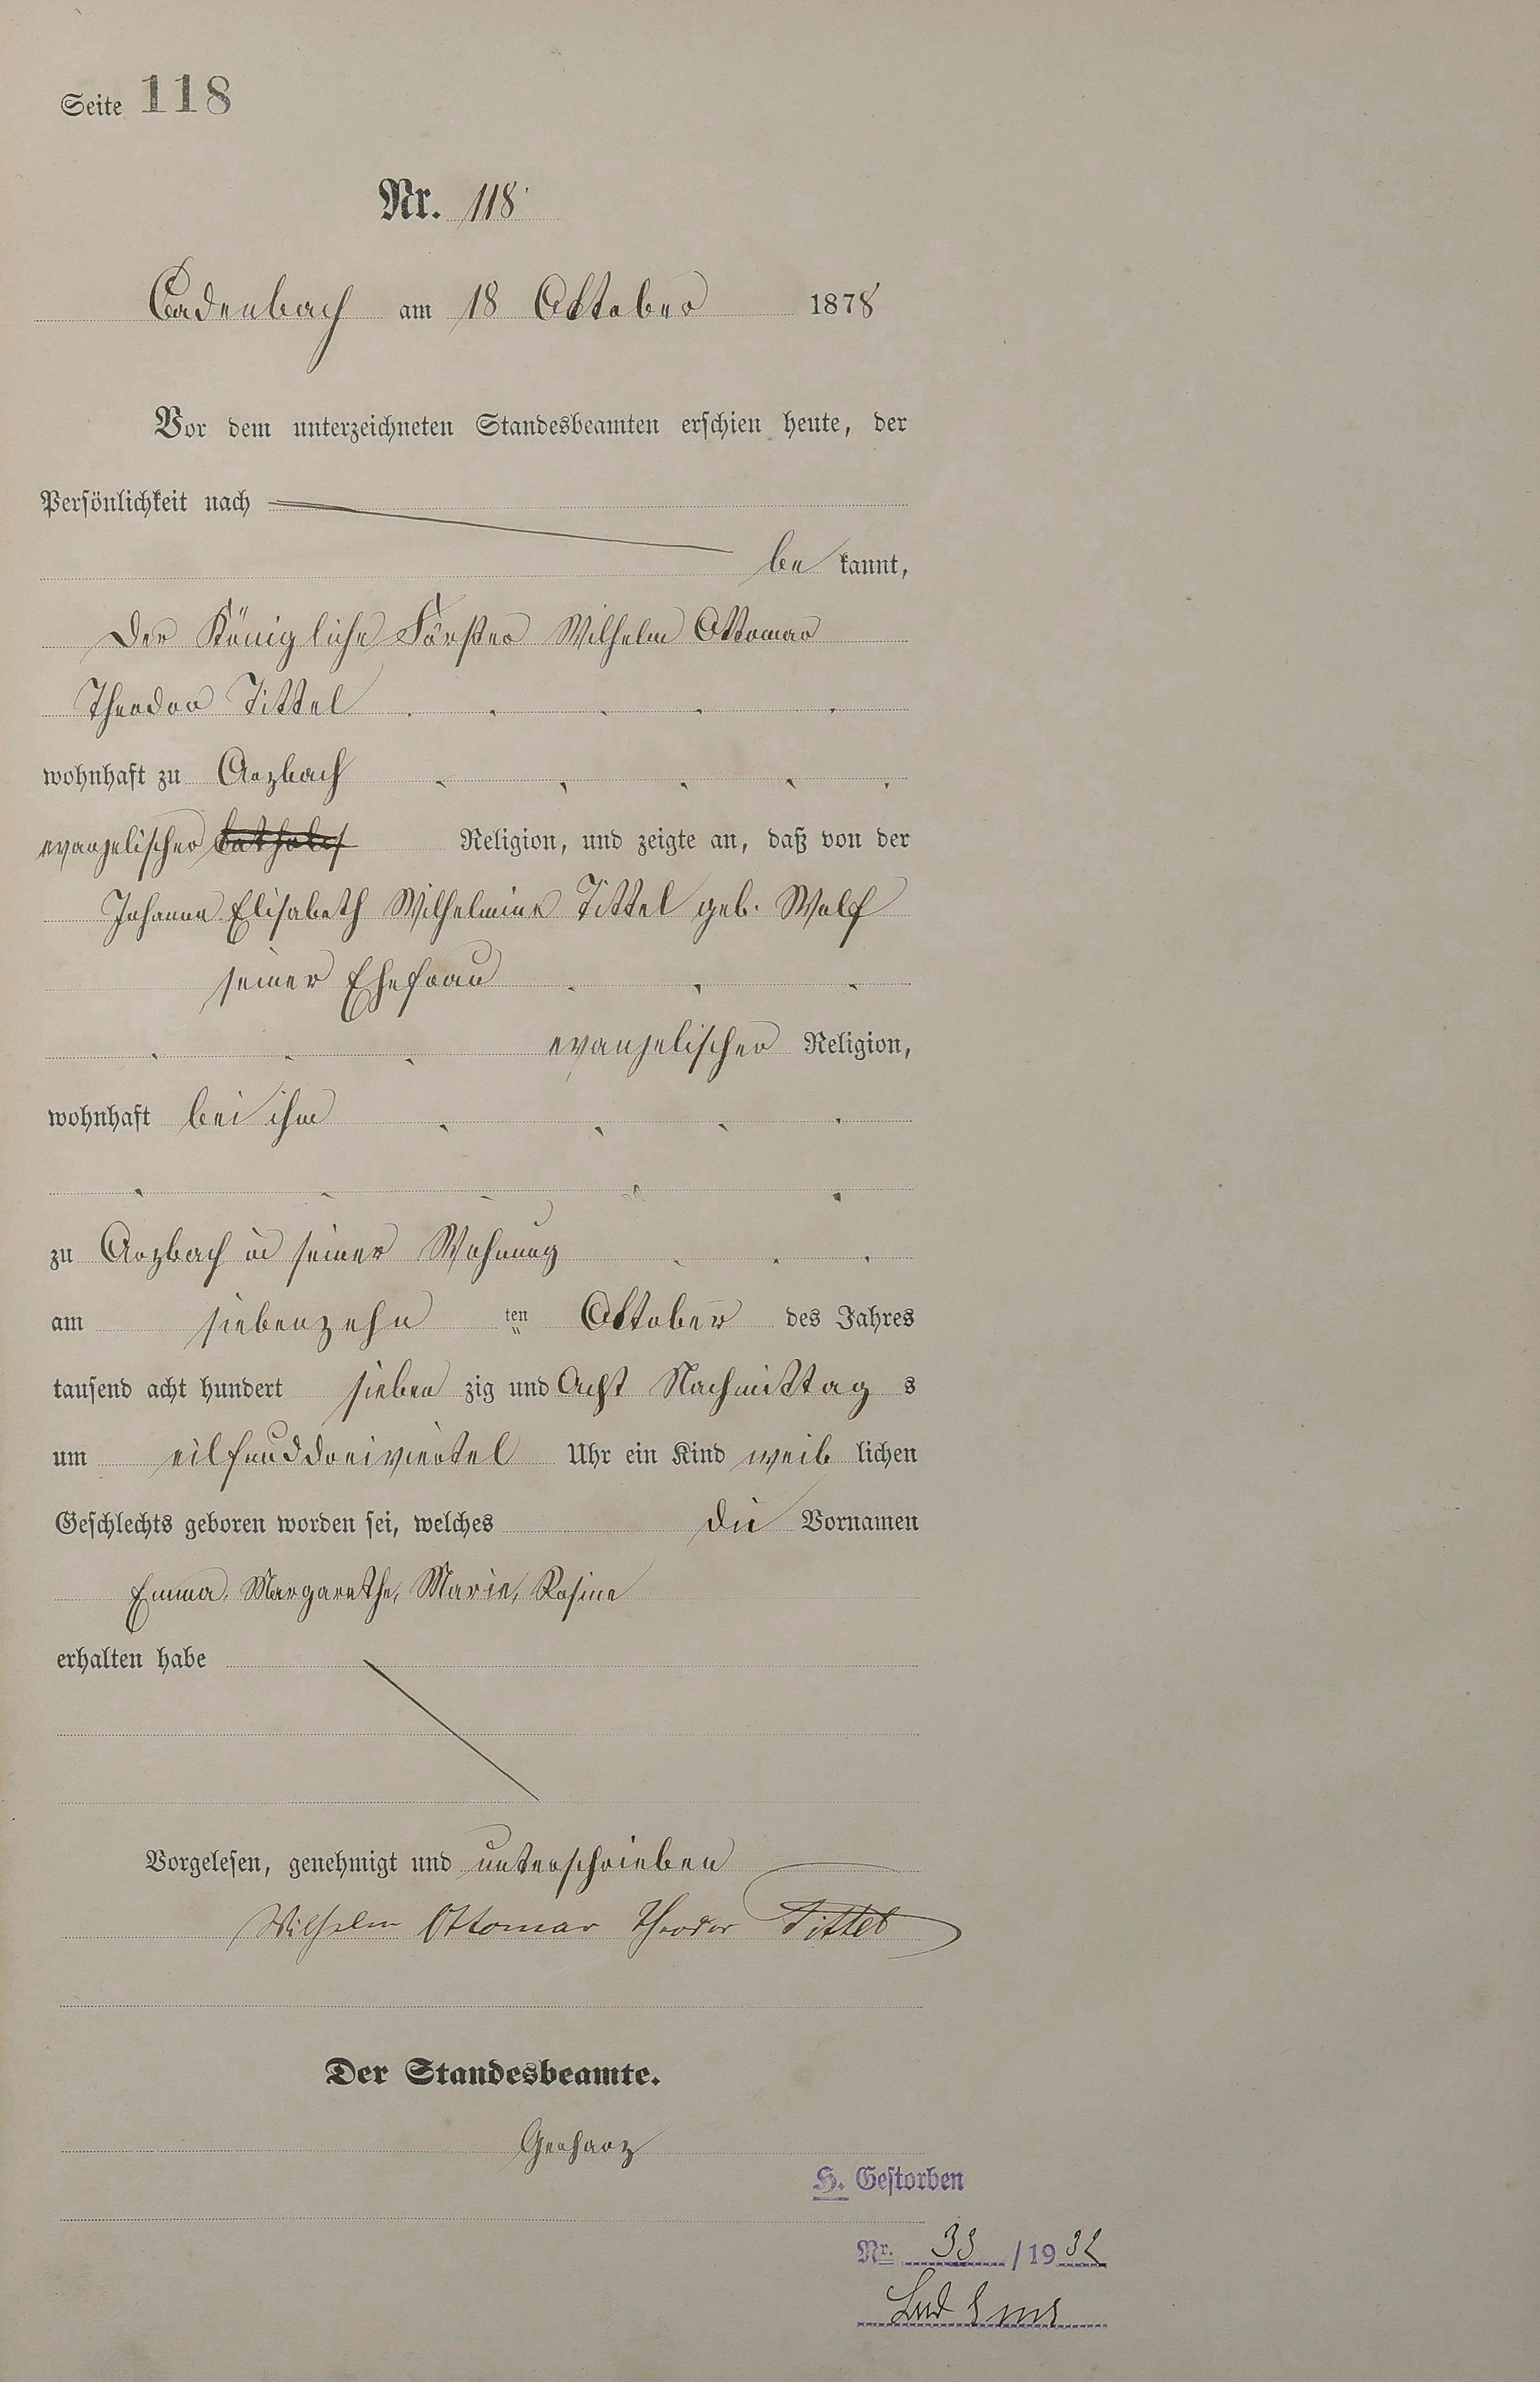 Seite 118
Nr. 118
Cadenbach am 18 Oktober 1878
Vor dem unterzeichneten Standesbeamten erschien heute, der
Persönlichkeit nach
be kannt,
Der Königliche Förster Wilhelm Ottomar
Theodor Tittel
wohnhaft zu Arzbach
evangelischer katholisch Religion, und zeigte an, daß von der
Johanna Elisabeth Wilhelmine Tittel geb. Wolf
seiner Ehefrau
evangelischer Religion,
wohnhaft bei ihm
zu Arzbach in seiner Wohnung
am siebenzehn ten Oktober des Jahres
tausend acht hundert sieben zig und Acht Nachmittag s
um eilfunddreiviertel Uhr ein Kind weib lichen
Geschlechts geboren worden sei, welches die Vornamen
Emma, Margarethe, Marie, Rosine
erhalten habe
Vorgelesen, genehmigt und unterschrieben
Wilhelm Ottomar Theodor Tittel
Der Standesbeamte.
Gerharz
H. Gestorben
Nr. 33 /19
Bad Ems